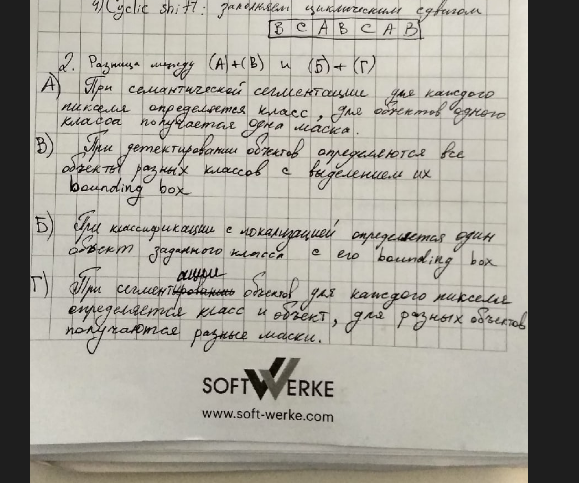 4) Cyclic shift: заполняем циклическим сдвигом
B C A B C A B
2. Разница между (А)+(В) и (Б)+(Г)
А) При семантической сегментации для каждого
пикселя определяется класс, для объектов одного
класса получается одна маска.
В) При детектировании объектов определяются все
объекты разных классов с выделением их
bounding box
Б) При классификации с локализацией определяется один
объект заданного класса с его bounding box
Г) При сегментации объектов для каждого пикселя
определяется класс и объект, для разных объектов
получаются разные маски.
SOFTWERKE
www.soft-werke.com